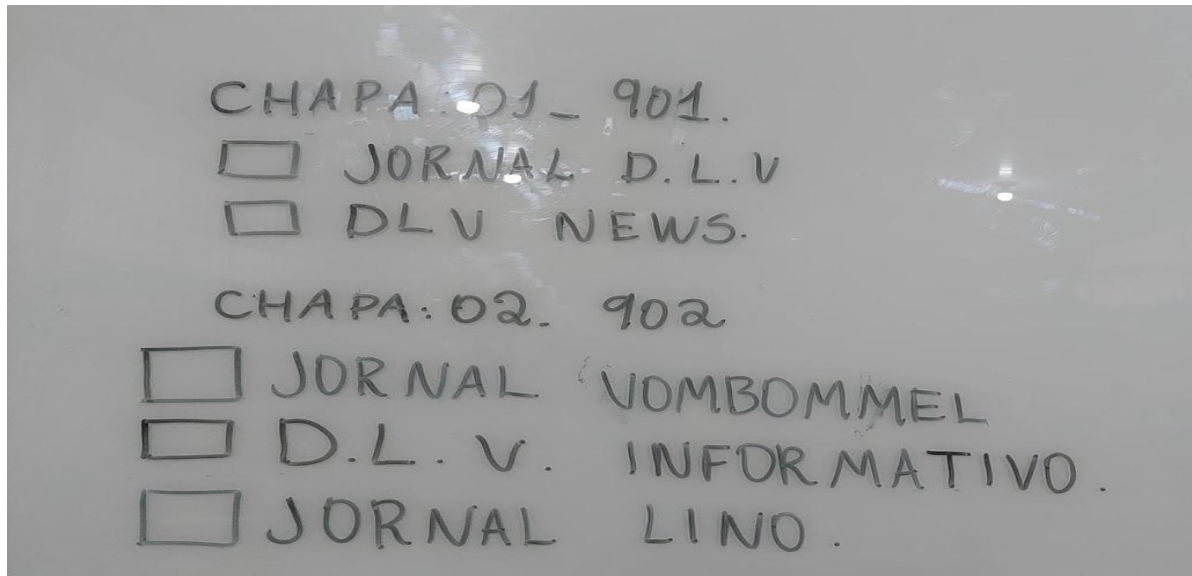 CHAPA: 01_ 901.
JORNAL D.L.V
DLV NEWS.
CHAPA: 02. 902
JORNAL VOMBOMMEL
D.L.V. INFORMATIVO.
JORNAL LINO.